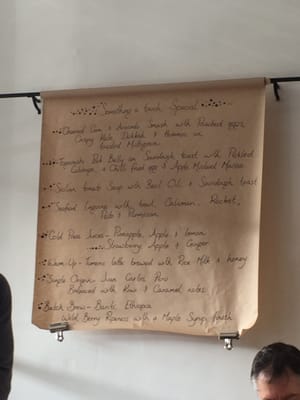 Something a touch Special
Charred Corn & Avocado Smash with Poached eggs,
Crispy Kale, Dukkah & Hummus on
toasted Multigrain
Pork Belly on Sourdough toast with Pickled
Cabbage, & Chilli fried egg & Apple
Sicilian tomato Soup with Basil Oil & Sourdough toast
Seafood Linguine with Squid, Calamari, Rocket,
Pesto & Parmesan
Cold Press Juices - Pineapple, Apple & lemon
Strawberry, Apple & Ginger
Warm Up - Turmeric latte brewed with Rice Milk & honey
Single Origin - Juan Cortes Peru
Balanced with & Caramel notes
Batch Brew - Banti, Ethiopia
Wild Berry Ripeness with a Maple Syrup finish